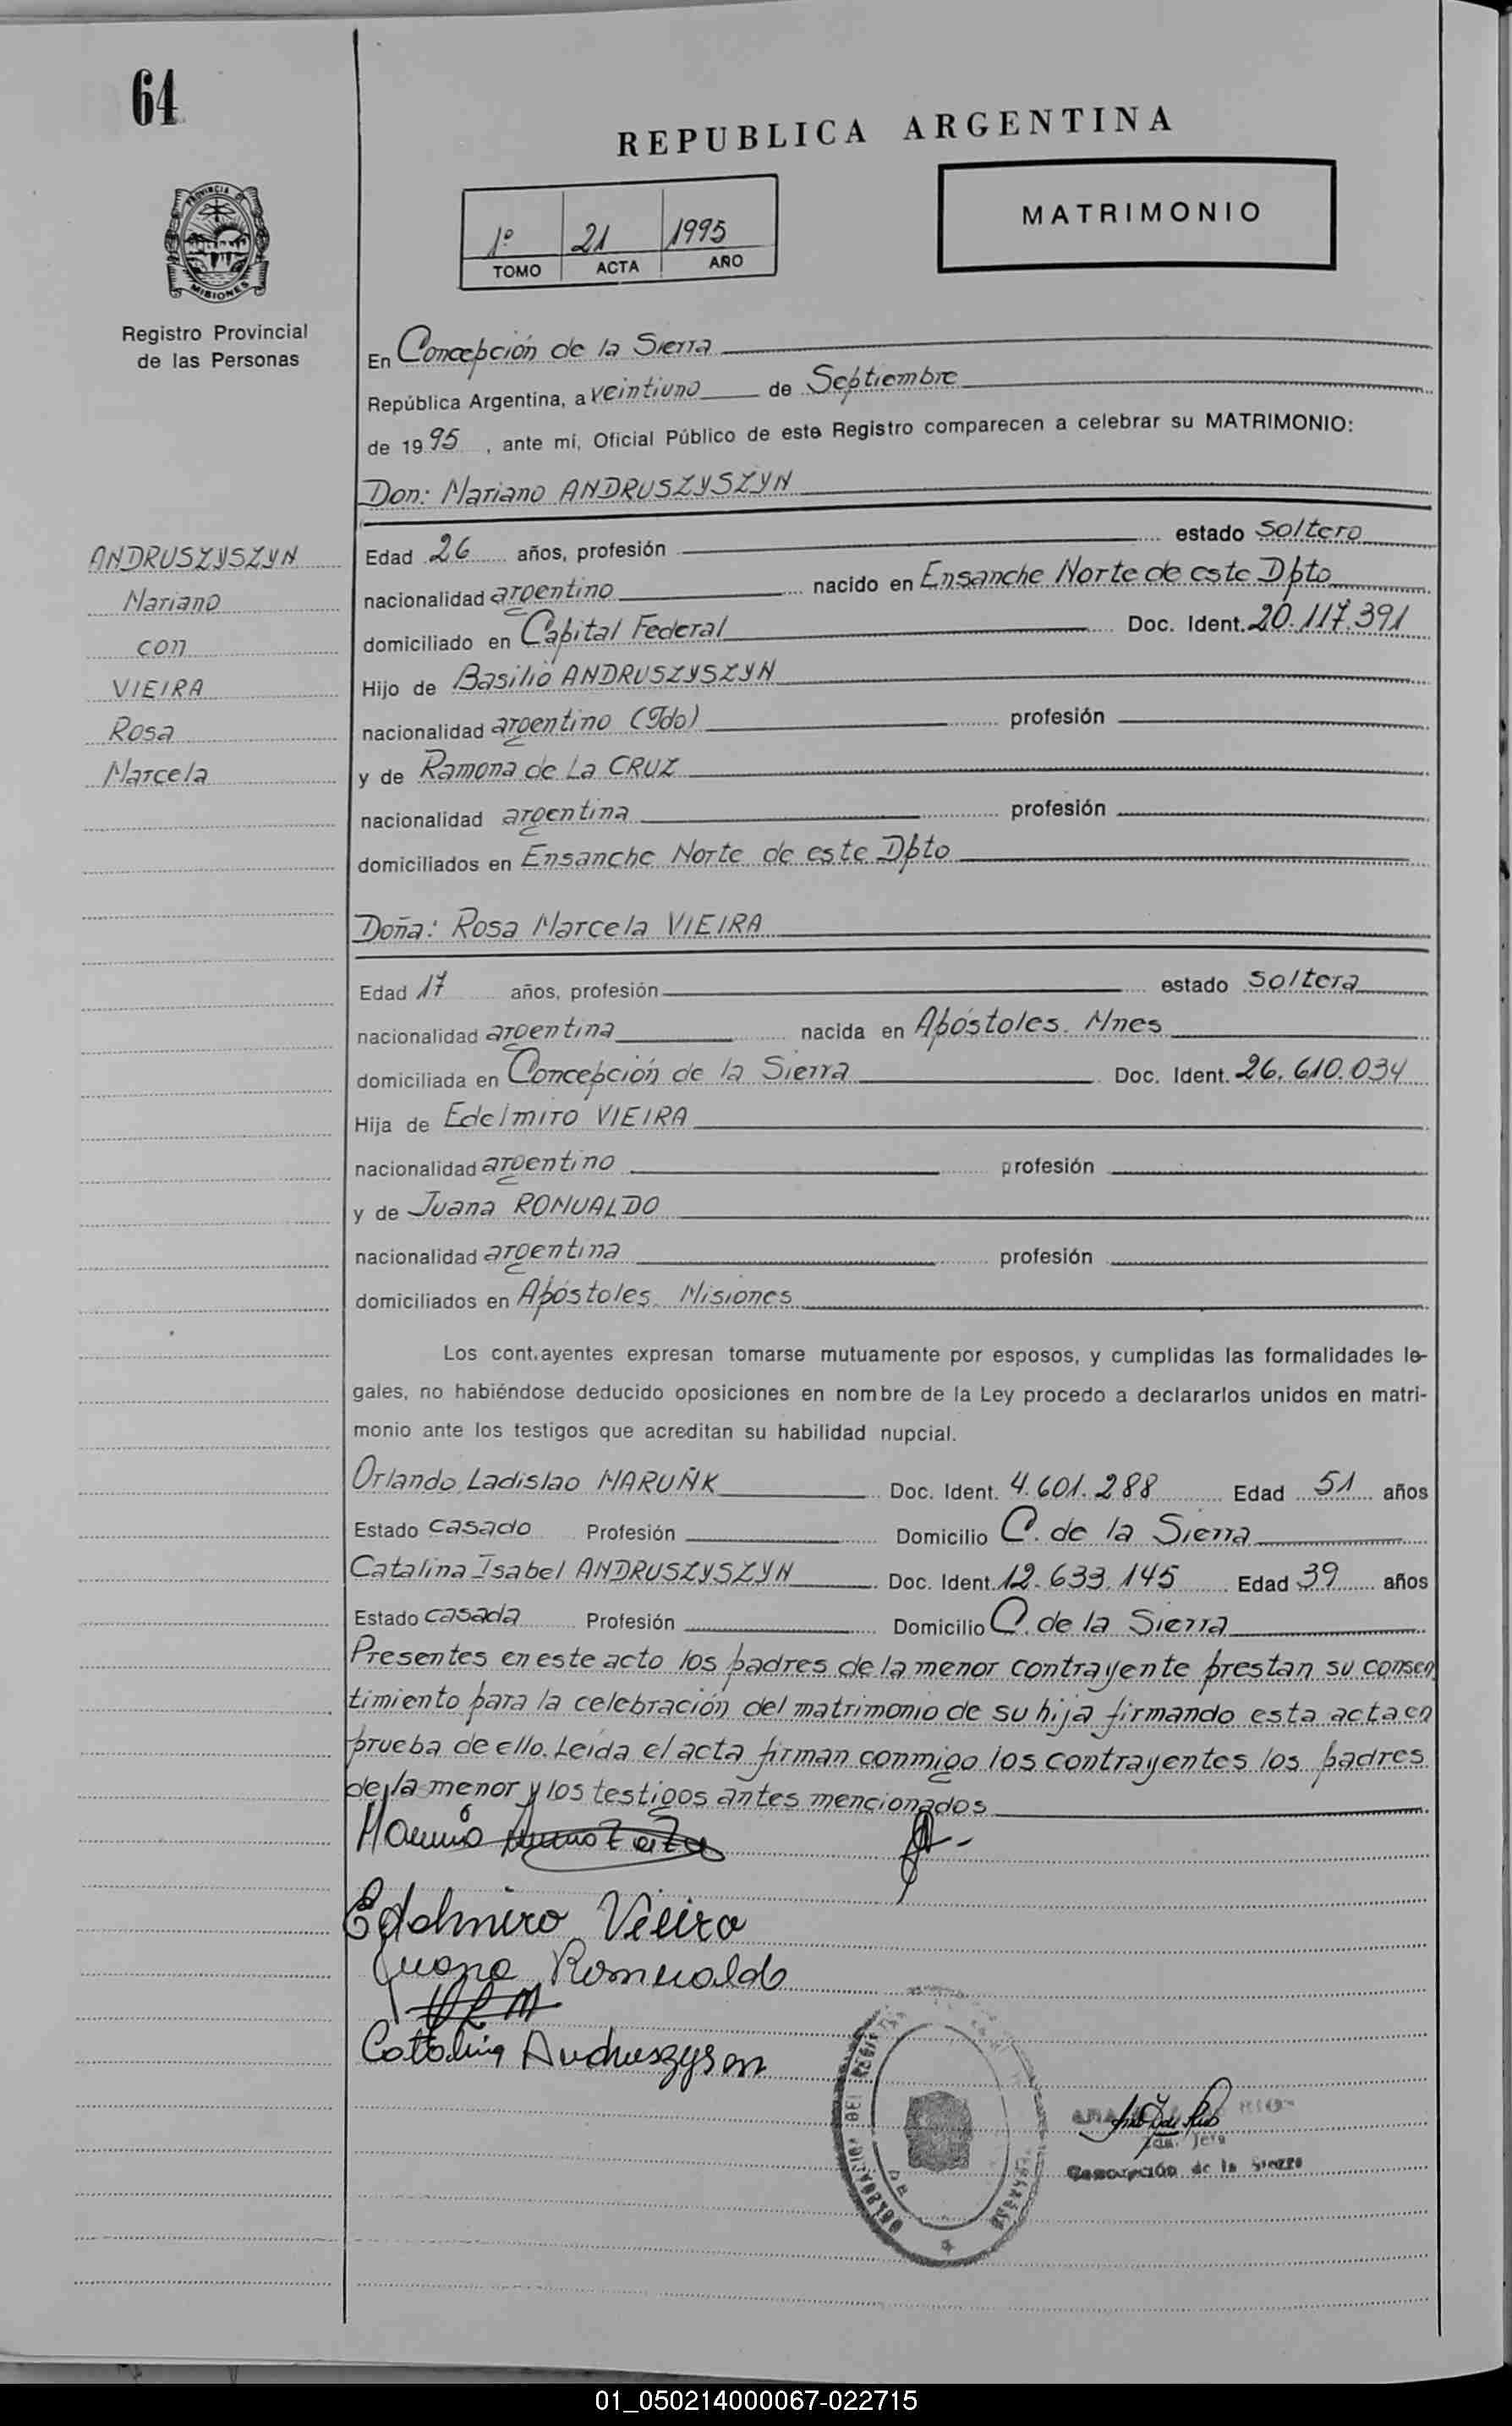 64
REPUBLICA ARGENTINA
PROVINCIA DE
MISIONES
Registro Provincial
de las Personas
1º 21 1995
TOMO ACTA AÑO
MATRIMONIO
En Concepción de la Sierra
República Argentina, a veintiuno de Septiembre
de 19 95, ante mí, Oficial Público de este Registro comparecen a celebrar su MATRIMONIO:
Don: Mariano ANDRUSZYSZYN
ANDRUSZYSZYN
Mariano
con
VIEIRA
Rosa
Marcela
Edad 26 años, profesión estado soltero
nacionalidad argentino nacido en Ensanche Norte de este Dpto
domiciliado en Capital Federal Doc. Ident. 20.117.391
Hijo de Basilio ANDRUSZYSZYN
nacionalidad argentino (Fdo) profesión
y de Ramona de La CRUZ
nacionalidad argentina profesión
domiciliados en Ensanche Norte de este Dpto
Doña: Rosa Marcela VIEIRA
Edad 17 años, profesión estado soltera
nacionalidad argentina nacida en Apóstoles Mnes
domiciliada en Concepción de la Sierra Doc. Ident. 26.610.034
Hija de Edelmiro VIEIRA
nacionalidad argentino profesión
y de Juana ROMUALDO
nacionalidad argentina profesión
domiciliados en Apóstoles Misiones
Los cont.ayentes expresan tomarse mutuamente por esposos, y cumplidas las formalidades le-
gales, no habiéndose deducido oposiciones en nombre de la Ley procedo a declararlos unidos en matri-
monio ante los testigos que acreditan su habilidad nupcial.
Orlando Ladislao MARUÑK Doc. Ident. 4.601.288 Edad 51 años
Estado casado Profesión Domicilio C. de la Sierra
Catalina Isabel ANDRUSZYSZYN Doc. Ident. 12.633.145 Edad 39 años
Estado casada Profesión Domicilio C. de la Sierra
Presentes en este acto los padres de la menor contrayente prestan su consen
timiento para la celebración del matrimonio de su hija firmando esta acta en
prueba de ello. Leída el acta firman conmigo los contrayentes los padres
de la menor y los testigos antes mencionados
Edelmiro Vieira
Juana Romualdo
Catalina Andruszyszyn
Concepción de la Sierra
01_050214000067-022715